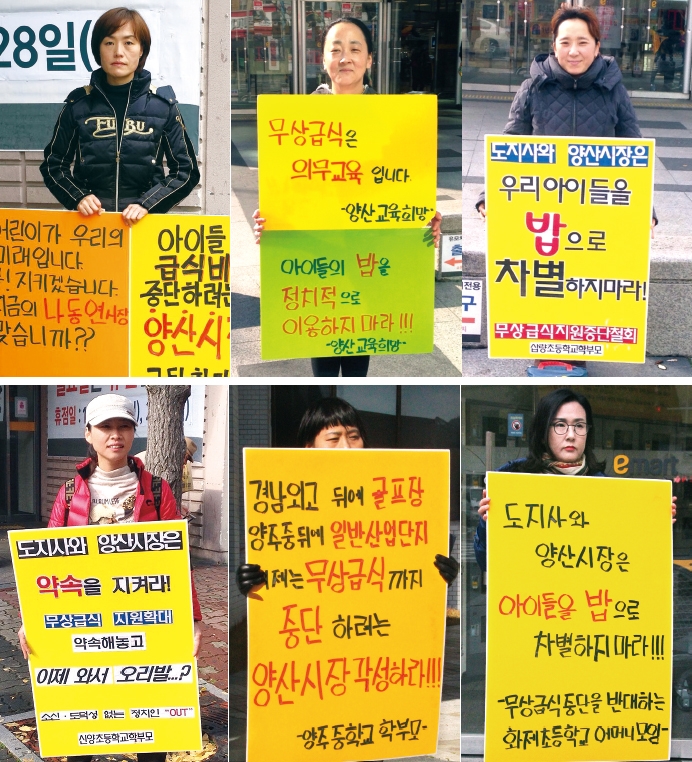 28일(
FUBU
우리의
미래입니다.
지키겠습니다.
나동연시장
맞습니까??
아이들
급식비
중단하려는
양산시장
무상급식은
의무교육 입니다.
-양산교육희망-
아이들의 밥을
정치적으로
이용하지마라!!!
-양산교육희망-
도지사와 양산시장은
우리아이들을
밥으로
차별하지마라!
무상급식지원중단철회
삽량초등학교학부모
전용
구
휴점일 :
도지사와 양산시장은
약속을 지켜라!
무상급식 지원확대
약속해놓고
이제 와서 오리발...?
소신·도덕성 없는 정치인 "OUT"
신양초등학교학부모
경남외고 뒤에 골프장
양주중뒤에 일반산업단지
이제는 무상급식까지
중단 하려는
양산시장각성하라!!!
-양주중학교 학부모-
emart
도지사와
양산시장은
아이들을 밥으로
차별하지마라!!!
-무상급식중단을 반대하는
화제초등학교 어머니모임-